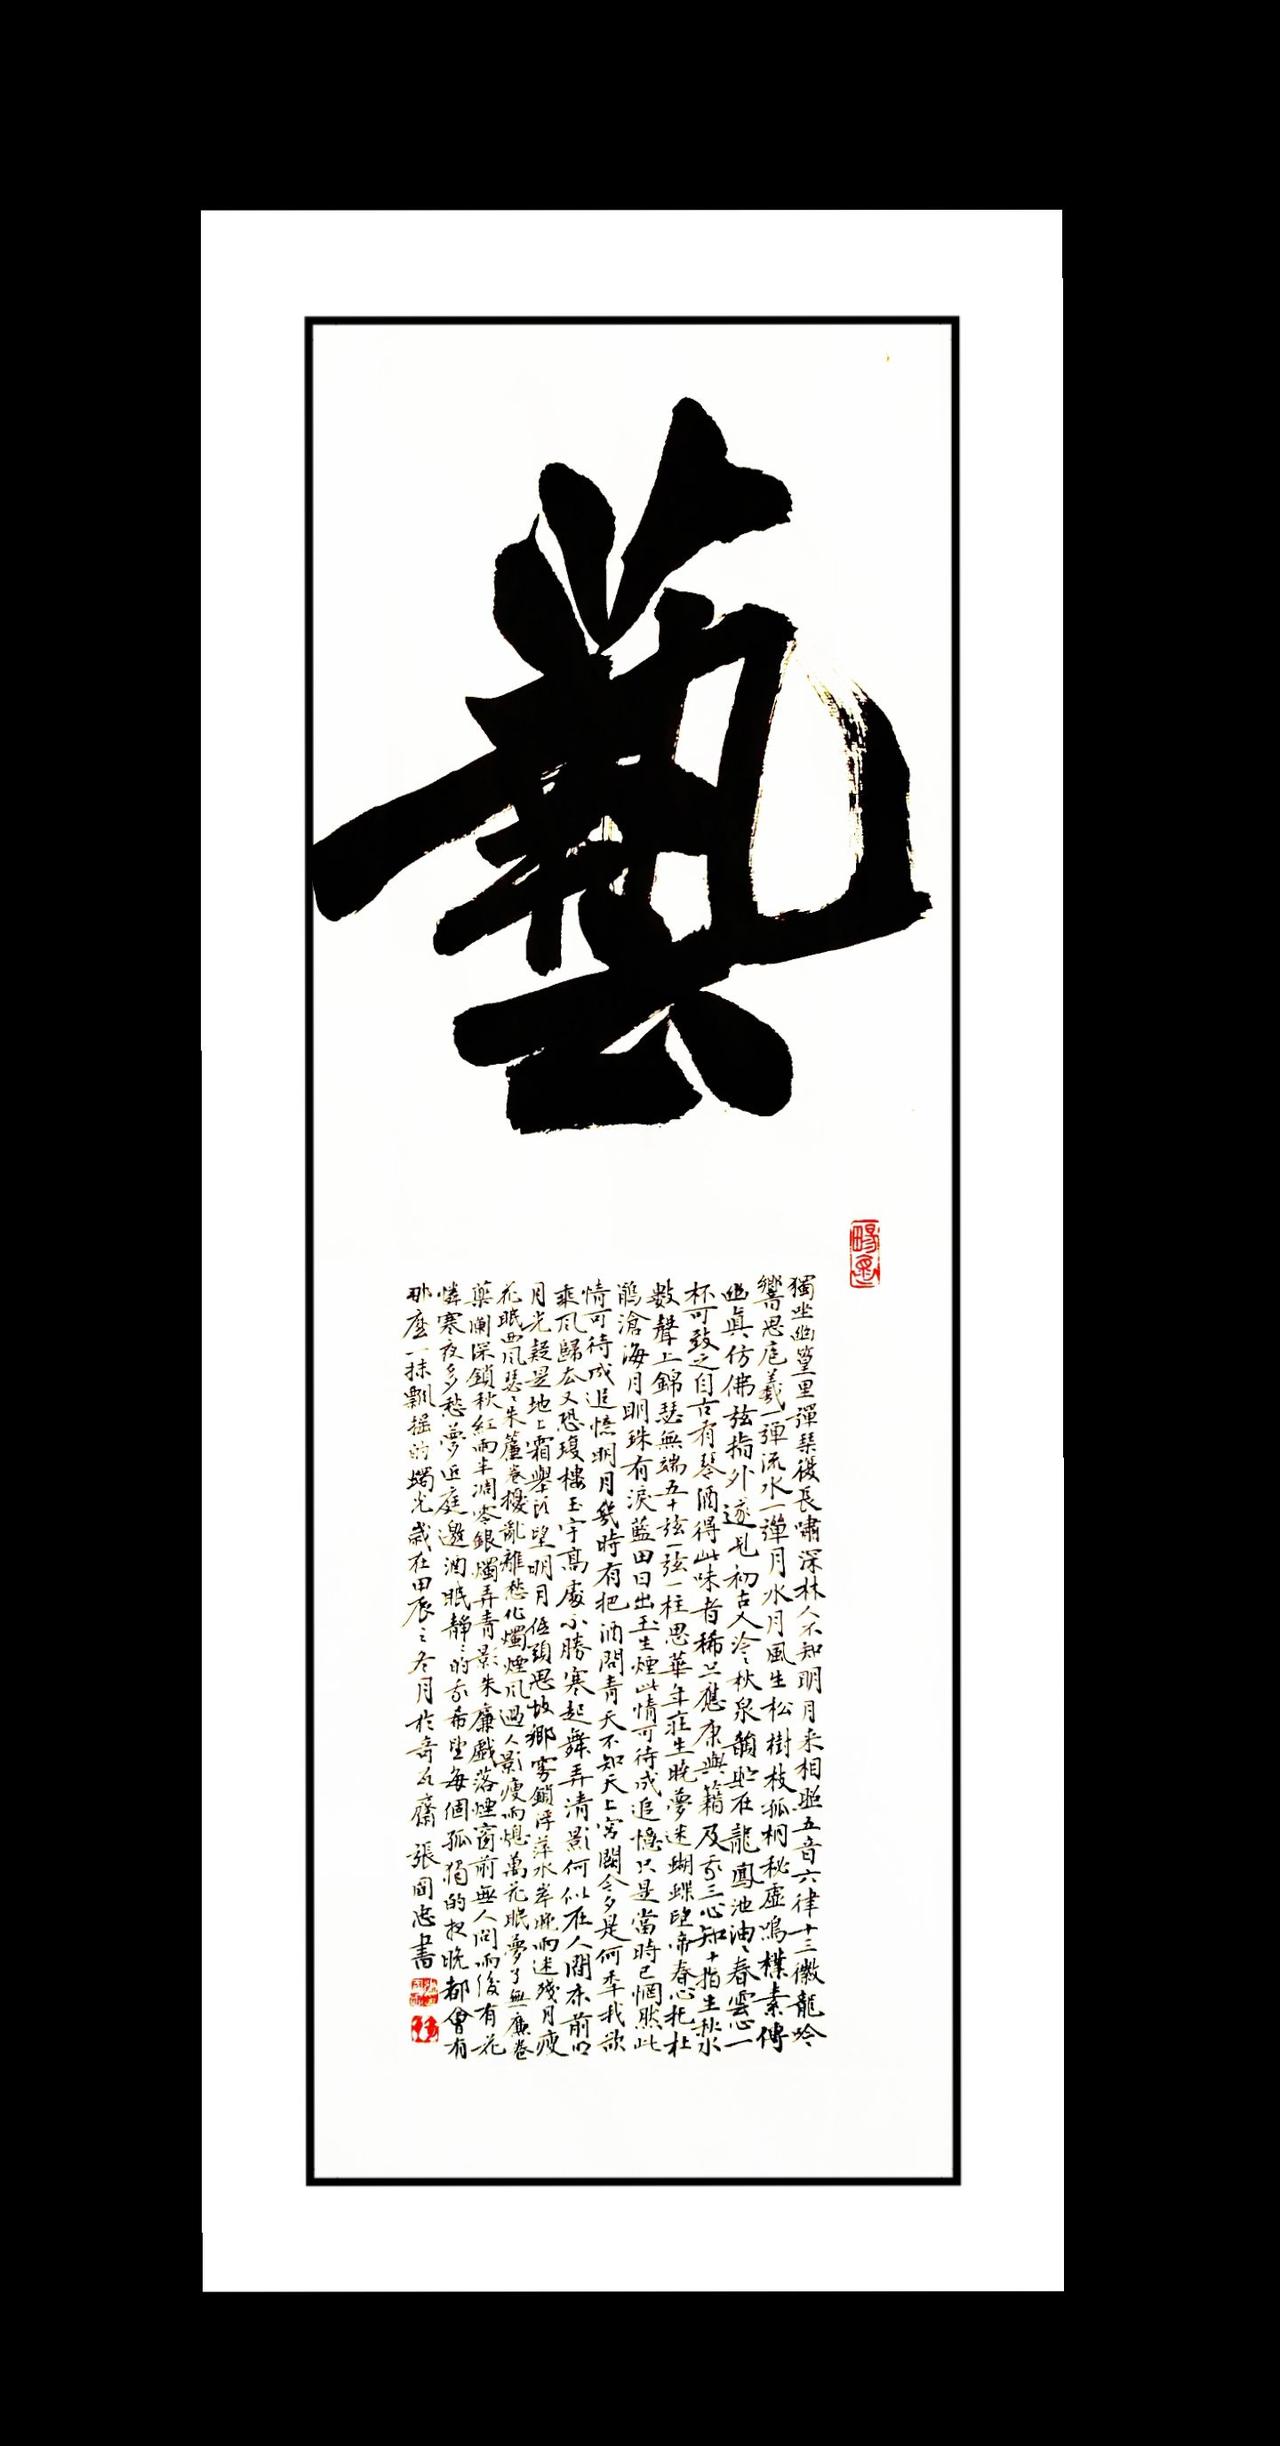 藝
獨坐幽篁里彈琴復長嘯深林人不知明月来相照五音六律十三徽龍吟
響思庖羲一彈流水一彈月水月風生松樹枝孤桐秘虛鳴樸素傳
幽真仿佛弦指外遂見初古人泠泠秋泉韻貯在龍鳳池油油春雲心一
杯可致之自古有琴酒得此味者稀只應康與籍及我三心知十指生秋水
數聲上錦瑟無端五十弦一弦一柱思華年莊生晓夢迷蝴蝶望帝春心托杜
鵑滄海月明珠有淚藍田日出玉生煙此情可待成追憶只是當時已惘然此
情可待成追憶明月幾時有把酒問青天不知天上宮闕今夕是何年我欲
乘風歸去又恐瓊樓玉宇高處不勝寒起舞弄清影何似在人間床前明
月光疑是地上霜舉頭望明月低頭思故鄉雾鎖浮萍水岸晚雨迷殘月瘦
花眠西風瑟瑟朱簾卷擾亂離愁化燭煙風過人影瘦雨熄萬花眠夢了無廉卷
藥闌深鎖秋紅雨半凋零銀燭弄青影朱廉戲落煙窗前無人問雨後有花
憐寒夜多愁夢近庭邀酒眠靜靜的我希望每個孤獨的夜晚都會有
那麼一抹飄摇的燭光歲在甲辰之冬月於奇石齋張國忠書